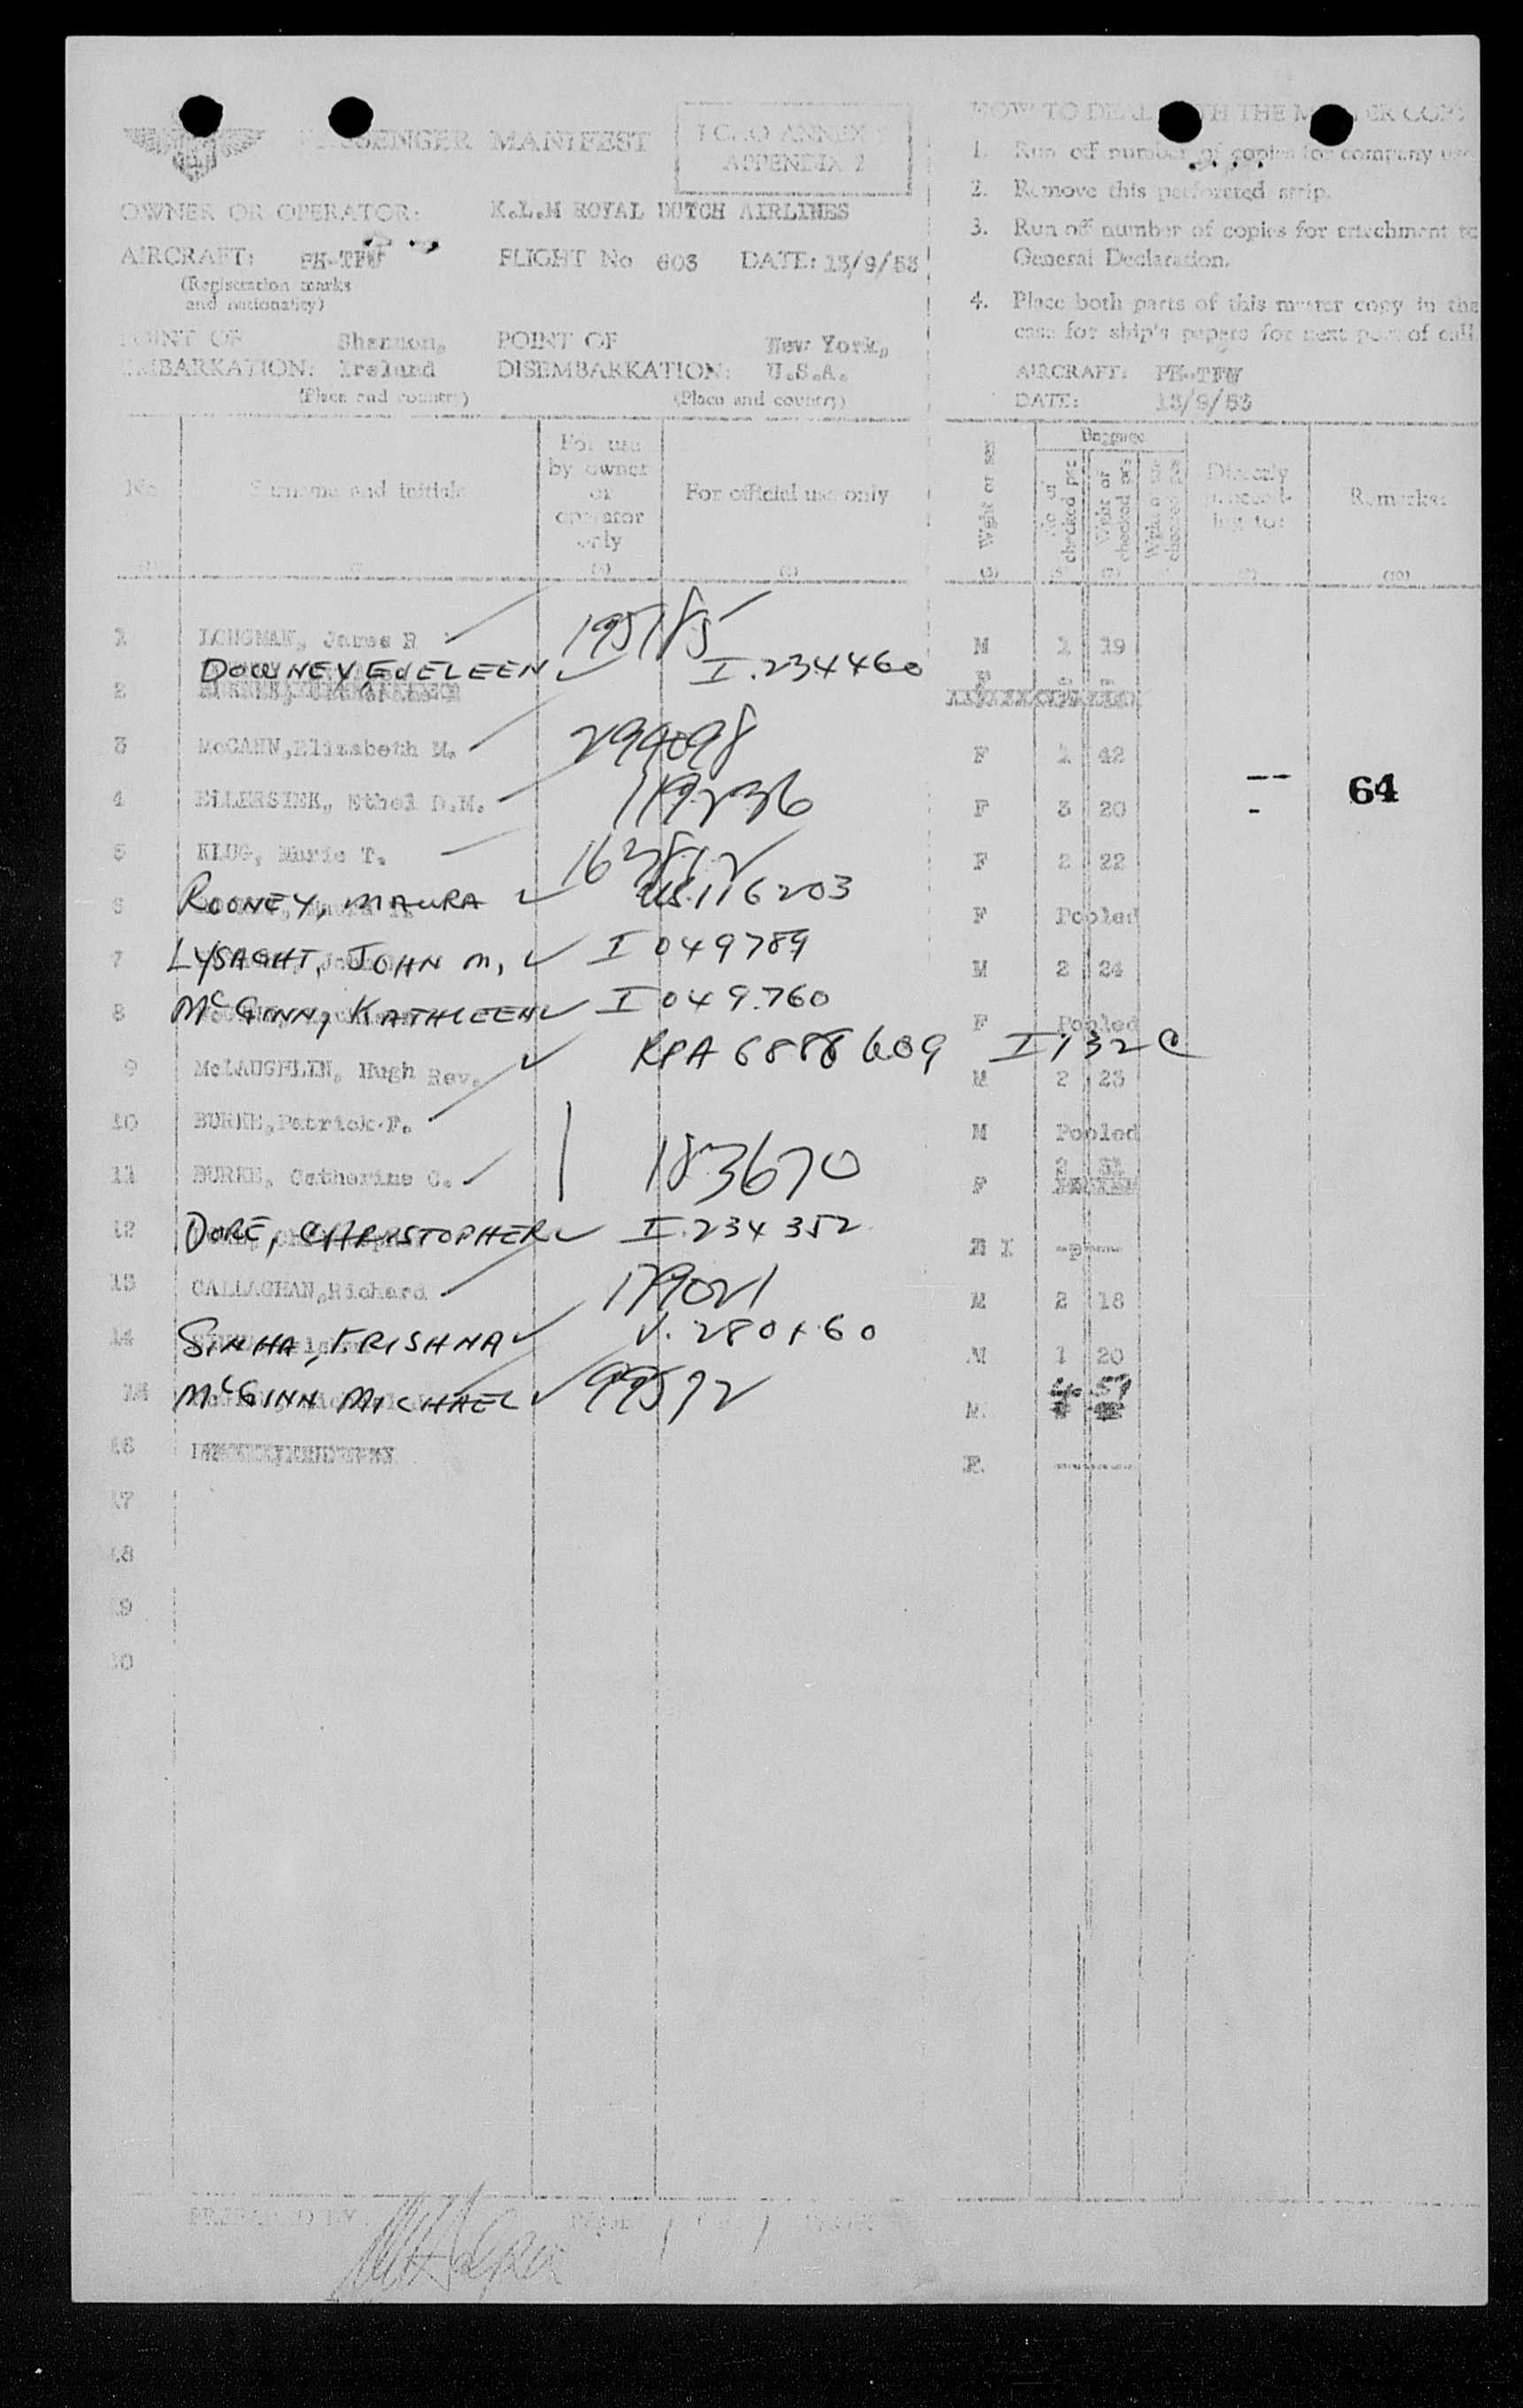 PASSENGER MANIFEST
ICAO ANNEX
APPENDIX 2
OWNER OR OPERATOR: K.L.M ROYAL DUTCH AIRLINES
AIRCRAFT: PH-TFW FLIGHT No 603 DATE: 13/9/53
(Registration marks
and nationality)
POINT OF EMBARKATION: Shannon, Ireland
(Place and country)
POINT OF DISEMBARKATION: New York, U.S.A.
(Place and country)
HOW TO DEAL WITH THE MASTER COPY
1. Run off number of copies for company use
2. Remove this perforated strip.
3. Run off number of copies for attachment to
General Declaration.
4. Place both parts of this master copy in the
case for ship's papers for next port of call
AIRCRAFT: PH-TFW
DATE: 13/9/53
No Surname and initials For use by owner or operator only For official use only
Baggage No of checked pcs Directly proceeding to: Remarks:
1 LONGMAN, James R 195185 M 1 19
2 DOWNEY, EVELEEN I.234460 F
3 McCANN, Elizabeth M. 299098 F 1 42
4 ELLERSIEK, Ethel D.M. 119236 F 3 20
64
5 KLUG, Marie T. F 2 22
6 ROONEY, MAURA 116203 F Pooled
7 LYSAGHT, JOHN M. I 049789 M 2 24
8 McGINN, KATHLEEN I 049760 F Pooled
9 McLAUGHLIN, Hugh Rev. 6888609 I 132 C M 2 23
10 BURKE, Patrick F. M Pooled
11 BURKE, Catherine C. 183670 F
12 DORE, CHRISTOPHER I.234352
13 CALLAGHAN, Richard 179021 M 2 18
14 SINHA, KRISHNA V. M 1 20
15 McGINN MICHAEL 99592 M.
16 F.
17
18
19
20
PREPARED BY